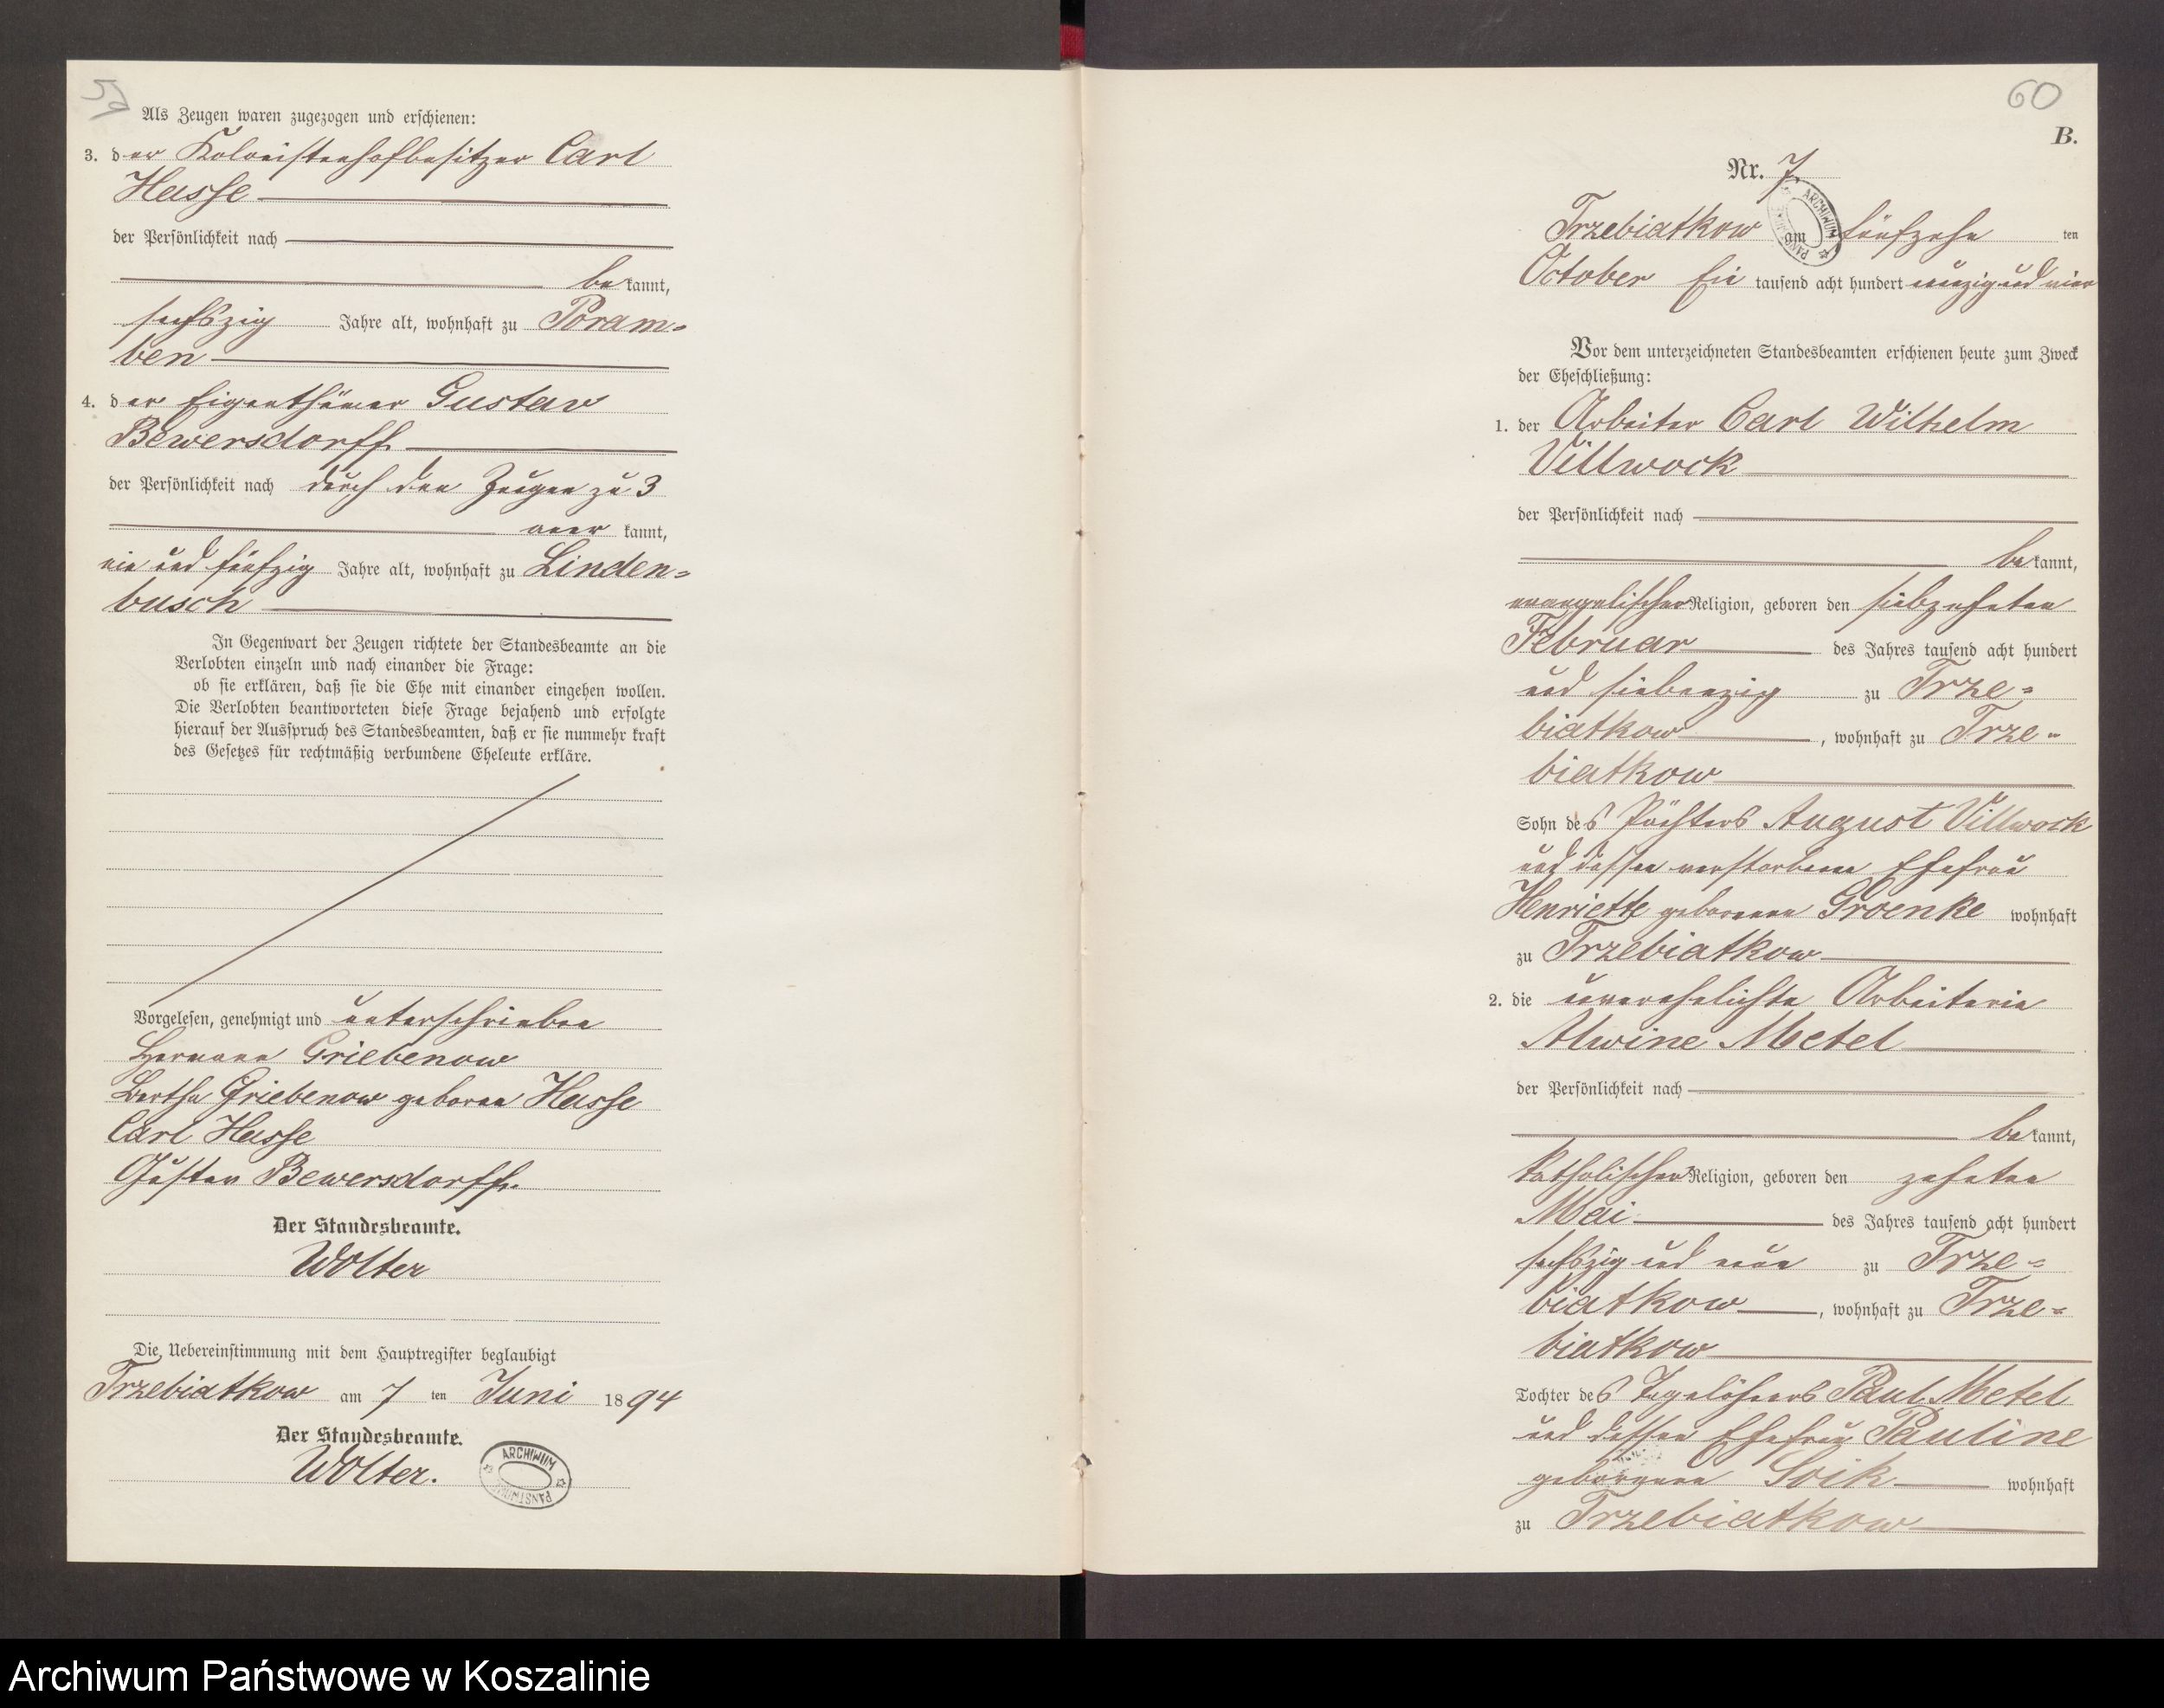 59
Als Zeugen waren zugezogen und erschienen:
3. der Kolonistenhofbesitzer Carl
Hasse
der Persönlichkeit nach
be kannt,
sechszig Jahre alt, wohnhaft zu Poram=
ben
4. der Eigenthümer Gustav
Bewersdorff
der Persönlichkeit nach durch den Zeugen zu 3
aner kannt,
ein und fünfzig Jahre alt, wohnhaft zu Linden=
busch
In Gegenwart der Zeugen richtete der Standesbeamte an die
Verlobten einzeln und nach einander die Frage:
ob sie erklären, daß sie die Ehe mit einander eingehen wollen.
Die Verlobten beantworteten diese Frage bejahend und erfolgte
hierauf der Ausspruch des Standesbeamten, daß er sie nunmehr kraft
des Gesetzes für rechtmäßig verbundene Eheleute erkläre.
Vorgelesen, genehmigt und unterschrieben
Hermann Griebenow
Bertha Griebenow geboren Hasse
Carl Hasse
Gustav Bewersdorff.
Der Standesbeamte.
Wolter
Die Uebereinstimmung mit dem Hauptregister beglaubigt
Trzebiatkow am 7 ten Juni 1894
Der Standesbeamte.
Wolter.
ARCHIWUM PAŃSTWOWE
60
B.
Nr. 7.
ARCHIWUM PAŃSTWOWE
Trzebiatkow am fünfzehn ten
October Ein tausend acht hundert neunzig und vier
Vor dem unterzeichneten Standesbeamten erschienen heute zum Zweck
der Eheschließung:
1. der Arbeiter Carl Wilhelm
Villwock
der Persönlichkeit nach
be kannt,
evangelischer Religion, geboren den siebzehnten
Februar des Jahres tausend acht hundert
und siebenzig zu Trze=
biatkow, wohnhaft zu Trze=
biatkow
Sohn des Pächters August Villwock
und dessen verstorbene Ehefrau
Henriette geborenen Groenke wohnhaft
zu Trzebiatkow
2. die unverehelichte Arbeiterin
Alwine Metel
der Persönlichkeit nach
be kannt,
katholischer Religion, geboren den zehnten
Mai des Jahres tausend acht hundert
sechszig und neun zu Trze=
biatkow, wohnhaft zu Trze=
biatkow
Tochter des Tagelöhners Paul Metel
und dessen Ehefrau Pauline
geborenen Soik wohnhaft
zu Trzebiatkow
Archiwum Państwowe w Koszalinie